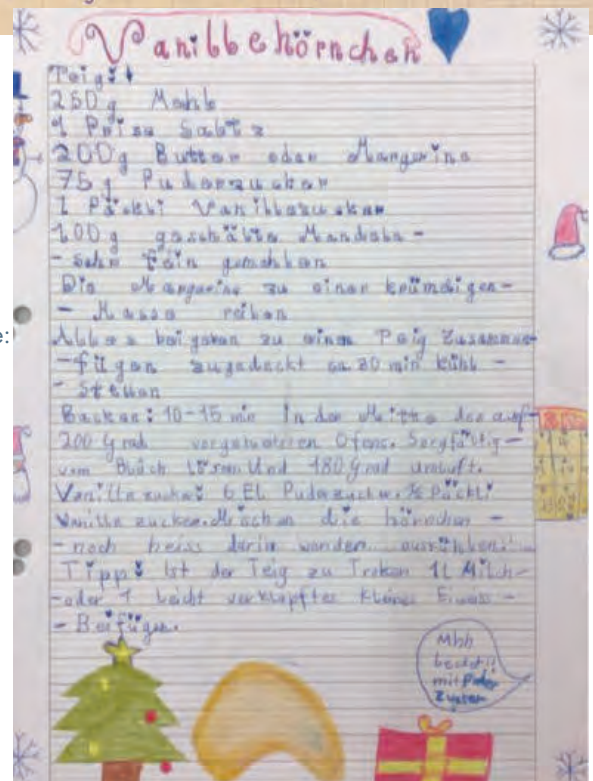 Vanillehörnchen
Teig:
250 g Mehl
1 Prise Salz
200g Butter oder Margarine
75 g Puderzucker
1 Päckli Vanillezucker
100 g geschälte Mandeln -
- sehr fein gemahlen
Die Margarine zu einer krümeligen -
- Masse reiben
Alles beigeben zu einem Teig zusammen
- fügen zugedeckt ca 30 min kühl -
- stellen
Backen: 10-15 min In der Mitte des auf-
200 Grad vorgeheizten Ofens. Sorgfältig -
vom Bläch lösen Und 180 Grad umluft.
Vanillezucker: 6 EL Puderzucker. ½ Päckli
Vanillezucker. Mischen die hörnchen -
- noch heiss darin wenden
Tipp: Ist der Teig zu Troken 1L Milch -
- oder 1 leicht verklopftes kleines Eiweiss -
- Beifügen.
Mhh
mit Puder
e: